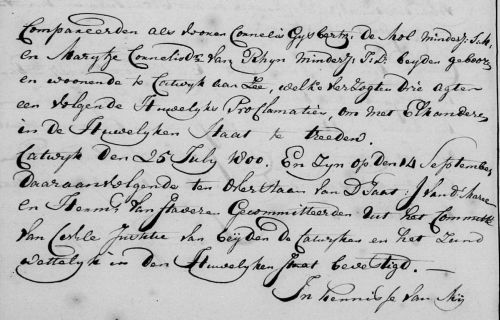 Compareerden als vooren Cornelis Gysbertz: de Mol Minderj: J:M:
en Marytje Cornelisdr: van Rhyn Minderj: J:D: beyden geboren
en woonende te Catwyk aan Zee, welke verzogten drie agter
een volgende Huwelyks Proclamatien, om met Elkanderen
in de Huwelyken Staat te treeden.
Catwyk den 25 July 1800. En zyn op den 14 September
daaraanvolgende ten overstaan van
en van Staveren Gecommitteerden uit het Committé
van Civile Justitie van beyden de Catwyken en het Zand
wettelyk in den Huwelyken Staat bevestigd. —
In kennisse van My